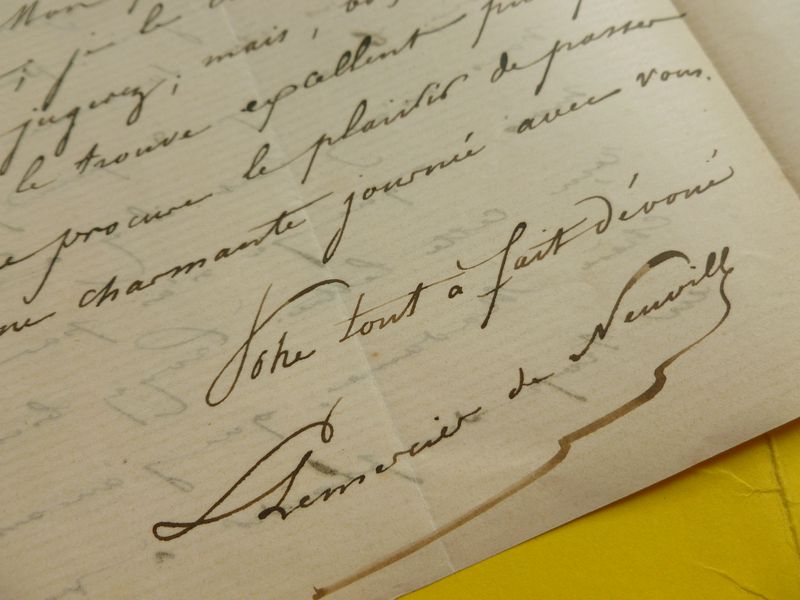 Mon
; je le
jugerez; mais, vo
le trouve excellent pu
procure le plaisir de passer
ne charmante journée avec vous.
Votre tout à fait dévoué
Lemercier de Neuvill